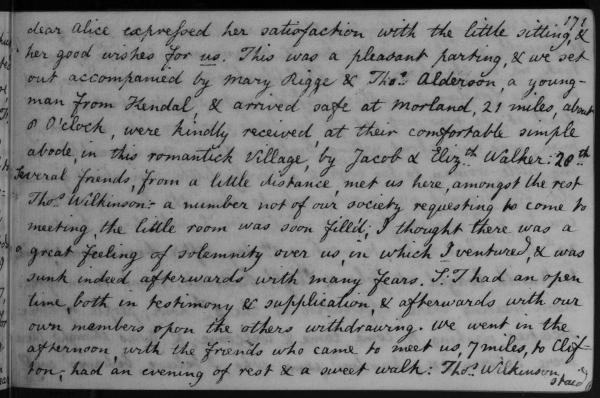 171
dear Alice expressed her satisfaction with the little sitting, &
her good wishes for us. This was a pleasant parting, & we set
out accompanied by Mary Rigge & Thos. Alderson, a young-
man from Kendal, & arrived safe at Morland, 21 miles, about
8 O'clock, were kindly received, at their comfortable simple
abode, in this romantick Village, by Jacob & Elizth. Walker: 28th
Several friends, from a little distance, met us here, amongst the rest
Thos. Wilkinson: a number not of our society requesting to come to
meeting, the little room was soon fill'd; I thought there was a
great feeling of solemnity over us, in which I ventured, & was
sunk indeed afterwards with many fears. S:T had an open
time, both in testimony & supplication, & afterwards with our
own members opon the others withdrawing. We went in the
afternoon, with the friends who came to meet us, 7 miles, to Clif-
ton, had an evening of rest & a sweet walk: Thos. Wilkinson
staid